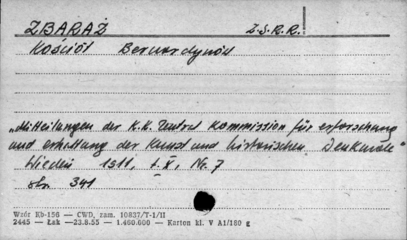 ZBARAŻ Z.S.R.R.
Kościół Bernardynów
"Mitteilungen der K.K. Zentral Kommission für erforschung
und erhaltung der Kunst und historischen Denkmale"
Wiedeń 1911, t. X, Nr. 7
str. 341
Wzór Kb-156 — CWD, zam. 10837/T-1/II
2445 — Łak —23.8.55 — 1.460.600 — Karton kl. V A1/180 g